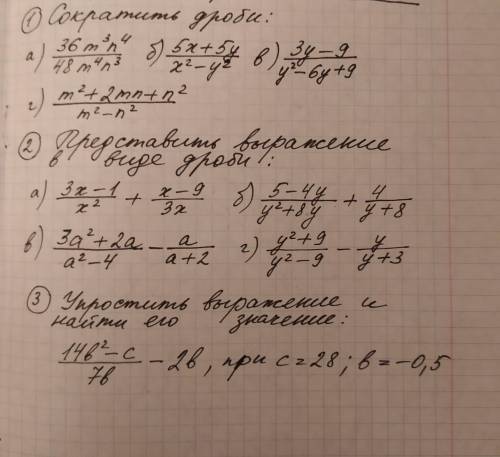 ① Сократить дроби:
а) 36m³n⁴/48m⁴n³ б) 5x+5y/x²−y² в) 3y−9/y²−6y+9
г) m²+2mn+n²/m²−n²
② Представить выражение
в виде дроби:
а) 3x−1/x² + x−9/3x б) 5−4y/y²+8y + 4/y+8
в) 3a²+2a/a²−4 − a/a+2 г) y²+9/y²−9 − y/y+3
③ Упростить выражение и
найти его значение:
14в²−c/7в − 2в, при c=28; в=−0,5